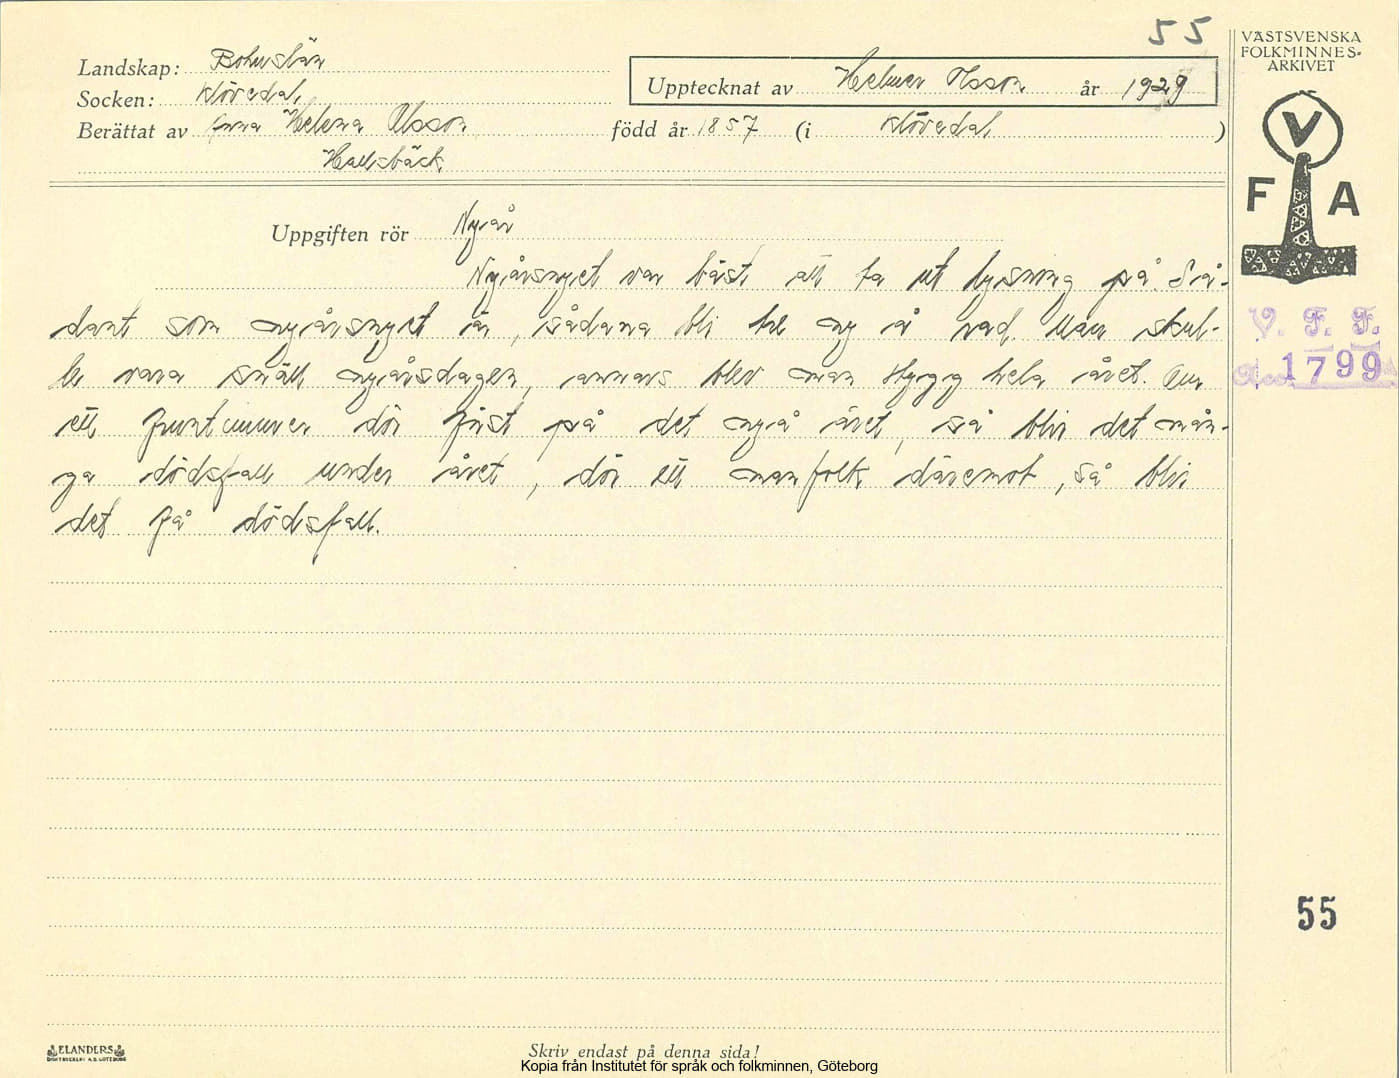 55
VÄSTSVENSKA
FOLKMINNES-
ARKIVET
Landskap: Bohuslän
Upptecknat av Helmer Olsson år 1929
Socken: Klövedal
Berättat av Anna Helena Olsson född år 1857 (i Klövedal )
Hallsbäck
V
F A
Uppgiften rör Nyår
Nyårsnyet var bäst att ta ut lysning på. Så-
dant som nyårsnyet är, sådana bli tre ny å rad. Man skul-
le vara snäll nyårsdagen, annars blev man stygg hela året. Om
ett fruntimmer dör först på det nya året, så blir det mån-
ga dödsfall under året, dör ett manfolk däremot, så blir
det få dödsfall.
V. F. F.
Acc. 1799
55
ELANDERS
BOKTRYCKERI A.B. GÖTEBORG
Skriv endast på denna sida!
Kopia från Institutet för språk och folkminnen, Göteborg